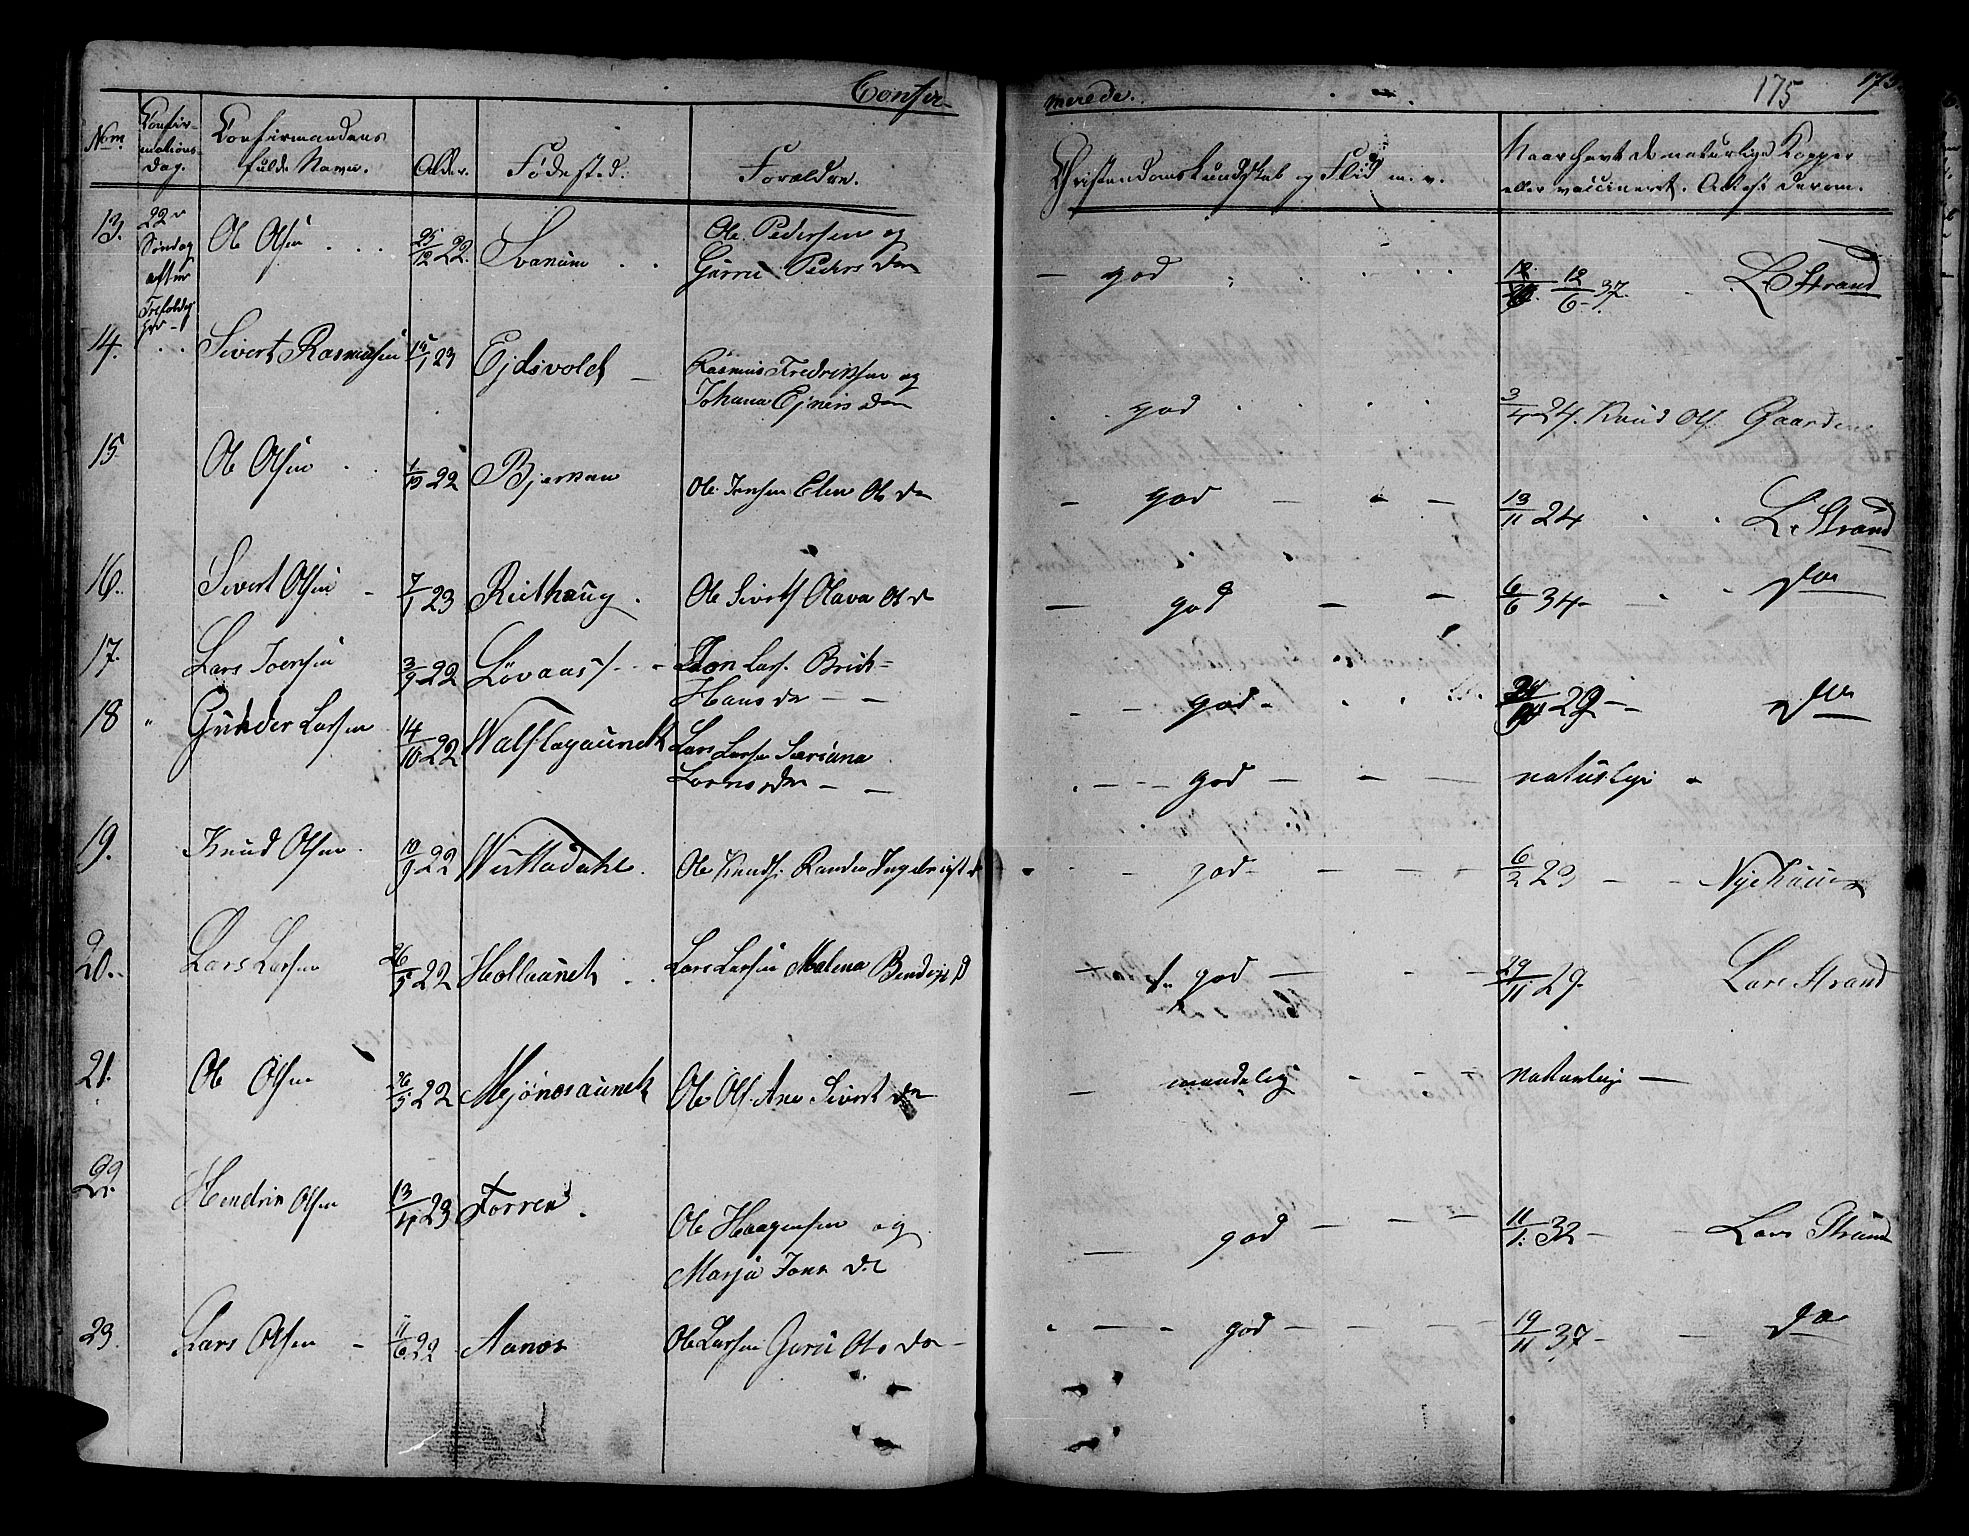 Confir-
merede.
175
Nom.
Confir-
mations
Dag.
Confirmandens
fulde Navn.
Alder.
Fødested.
Forældre.
Christendomskundskab og Flid m. v.
Naar havt de naturlige Kopper
eller vaccineret. Attest derom.
13.
22de
Søndag
efter
Ole Olsen
25/12 22.
Svanem
Ole Pedersen og
Gurru Pedersdr
god
12/6 37.
L Strand
14.
Sivert Rasmusen
15/1 23
Ejdsvold
Rasmus Fredriksen og
Johana Ejnersdr
god
3/4 24. Knud Ols. Gaarden
15
Ole Olsen
1/12 22
Bjerkan
Ole Jensen Elen Olsdr
god
13/11 24
L. Strand
16.
Sivert Olsen
7/1 23
Riethaug
Ole Siverts Olava Olsd
god
6/6 34
Do
17.
Lars Joensen
3/9 22
Løvaas
Jon Lars. Brith
Hansdr
god
29
Do
18
Gunder Larsen
14/10 22
Walslagaunet
Lars Larsen Seriana
Larsdr
god
naturlige
19.
Knud Olsen
10/9 22
Westladahl
Ole Knuds. Randi Ingebrigtsd
god
6/2 23
20.
Lars Larsen
26/5 22
Hollaunet
Lars Larsen Malena Bendigsd
god
29/11 29.
Lars Strand
21.
Ole Olsen
26/5 22
Mjønesaunet
Ole Ols. Ane Sivertsdr
maadelig
naturlige
22.
Hendrik Olsen
13/4 23
Forren
Ole Haagensen og
Marja Jonsdr
god
11/1. 32
Lars Strand
23.
Lars Olsen
11/6 22
Aanes
Ole Larsen Guru Olsdr
god
19/11 37
Do